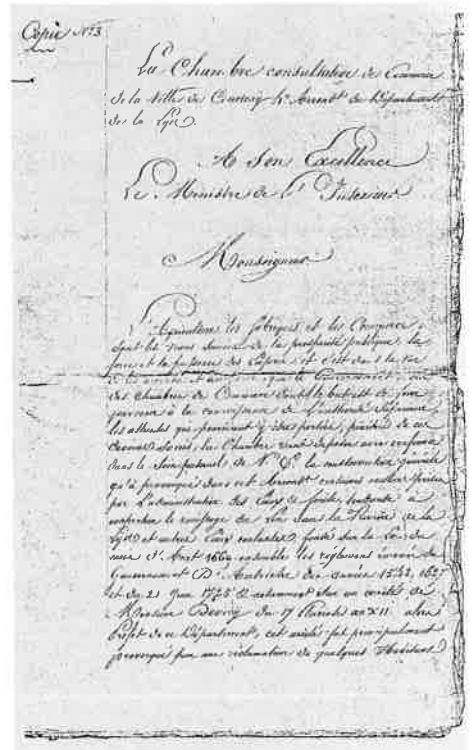 Copie N.° 3
La Chambre consultative de Commerce
de la Ville de Courtray 4.e Arrond.t du Département
de la Lys
A Son Excellence
Le Ministre de l'Intérieur
Monseigneur
L'Agriculture les fabriques et les Commerce
sont les vraies sources de la prospérité publique, la
force et la puissance des et c'est dans la vue
de que le Gouvernement
des chambres de Commerce dont le but est de faire
parvenir à la connaissance de l'autorité Supérieure
les atteintes que pourraient y être portées, pénétrée de ces
la Chambre vient déposer avec confiance
dans le Sein paternel de V. E. le mécontentement général
qu'a provoqué dans cet Arrond.t certaines mesures
par l'administration des Eaux et forêts, tendante à
empêcher le rouissage du Lin dans la Rivière de la
Lys et autres Eaux fondé sur la Loi du
mois d'Août 1669 ensemble les réglemens
Gouvernement D'Autriche des années 1542, 1627
et du 21 Juin 1775 et notamment sur un arrêté de
Monsieur Deviry du 17 an XII alors
Préfet de ce Département, cet arrêté fut principalement
provoqué par une réclamation de quelques Habitans